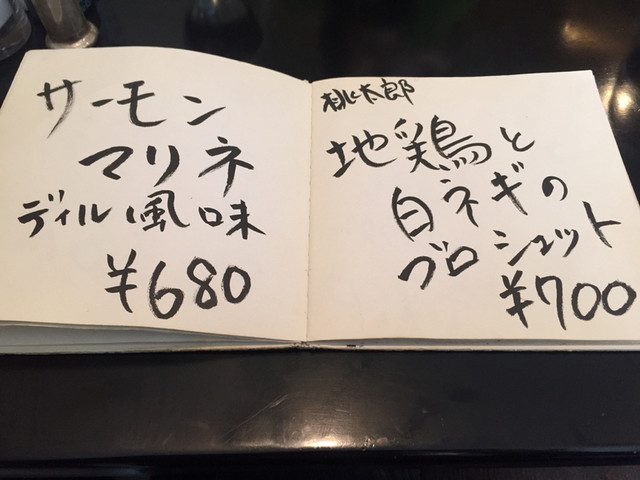 サーモン
マリネ
ディル風味
¥680
桃太郎
地鶏と
白ネギの
ブロシェット
¥700